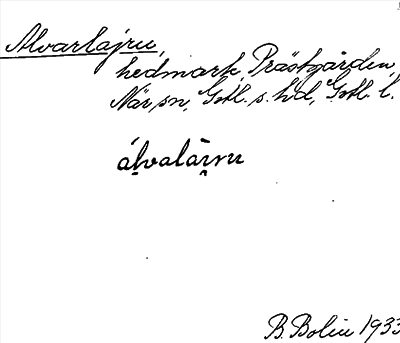 Alvarlajru,
hedmark, Prästgården,
När sn, Gotl. s. hd, Gotl. l.
álvalàjru
B. Bolin 1933